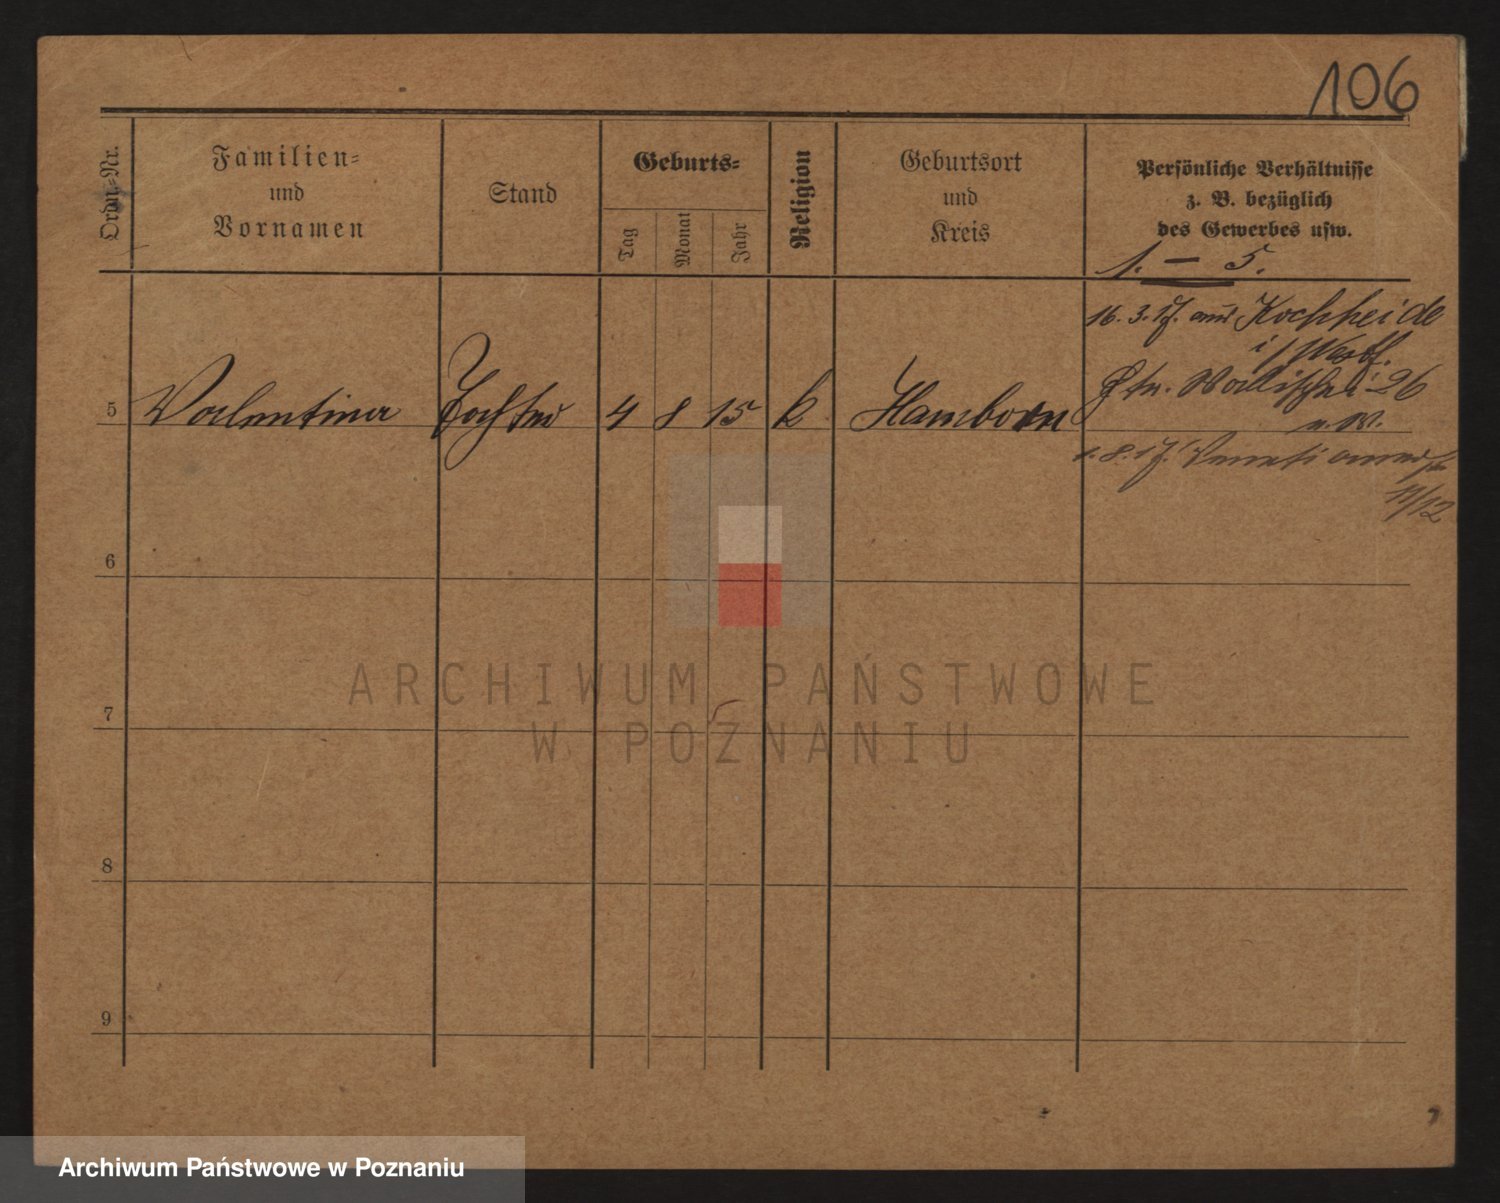 106
Ordn.-Nr.
Familien-
und
Vornamen
Stand
Geburts-
Tag
Monat
Jahr
Religion
Geburtsort
und
Kreis
Persönliche Verhältnisse
z. B. bezüglich
des Gewerbes usw.
1. – 5.
16. 3. 17. aus Hochheide
i/Westf.
5 Valentina Tochter 4 8 15 k Hamborn
Wallischei 26
1. 8. 17.
11/12
6
7
8
9
ARCHIWUM PAŃSTWOWE
W POZNANIU
Archiwum Państwowe w Poznaniu